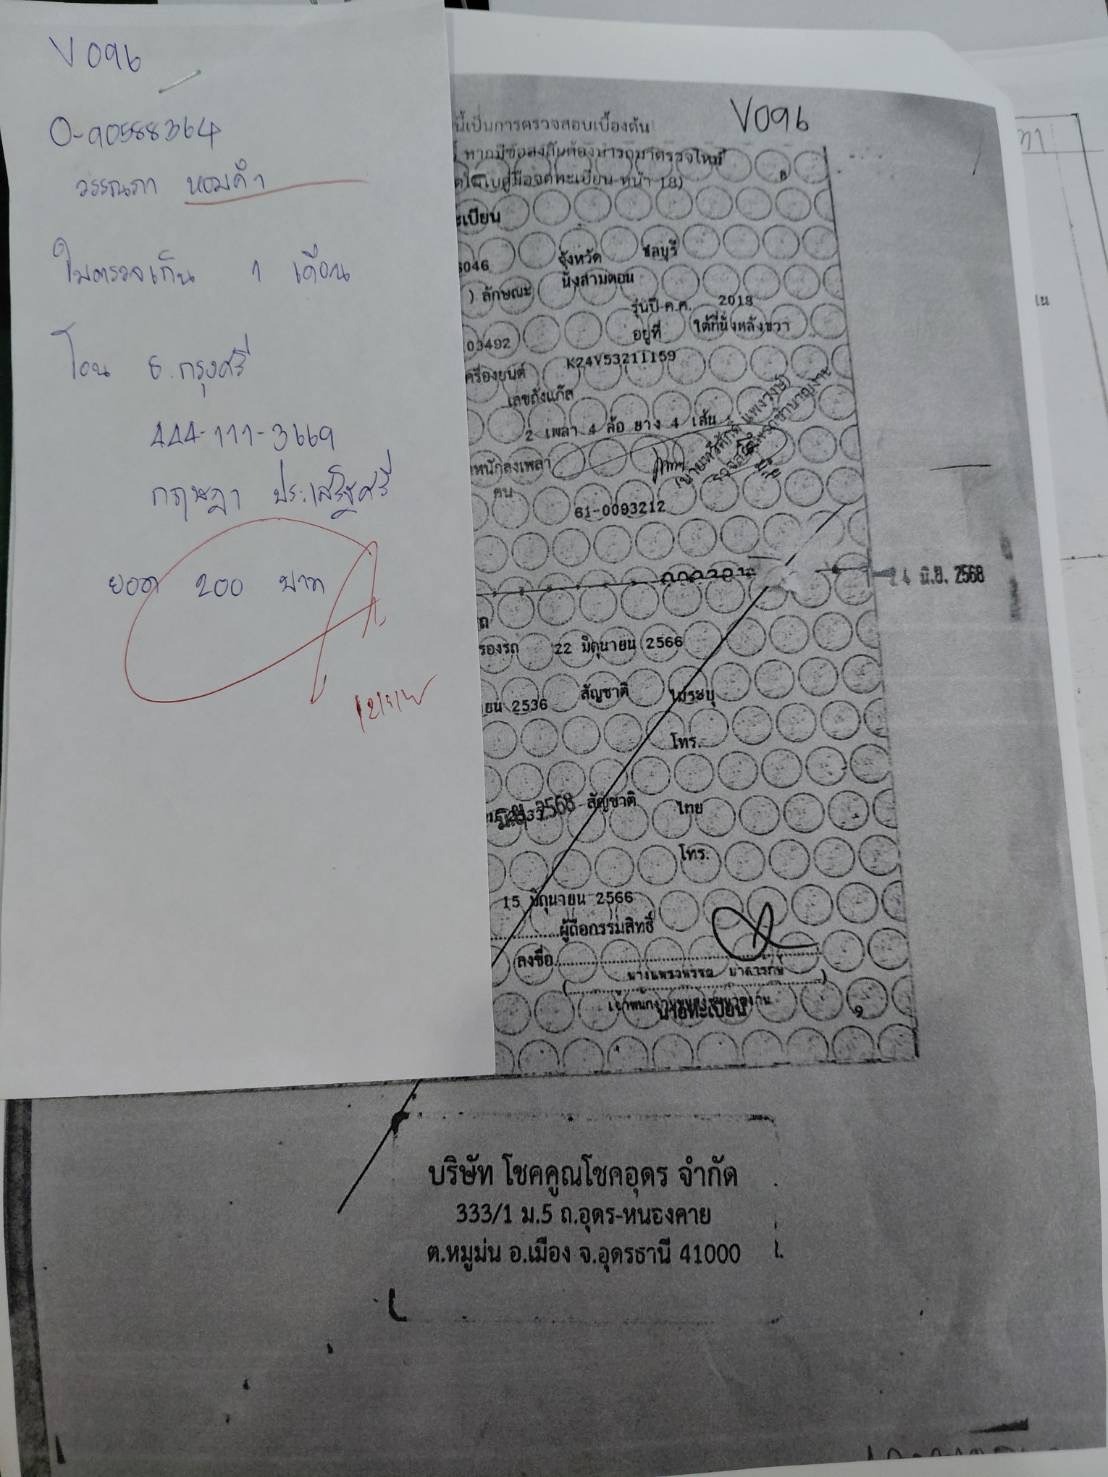 V096
0-90588364
วรรณภา หอมคำ
ใบตรวจเกิน 1 เดือน
โอน ธ.กรุงศรี
444-111-3669
กฤษฎา ประเสริฐศรี
ยอด 200 บาท
V096
นี้เป็นการตรวจสอบเบื้องต้น
หากมีข้อสงสัยต้องนำรถมาตรวจใหม่
ทะเบียน หน้า 18)
จังหวัด ชลบุรี
) ลักษณะ นั่งสามตอน
รุ่นปี ค.ศ. 2018
03492 อยู่ที่ ใต้ที่นั่งหลังขวา
ครื่องยนต์ K24V53211159
เลขถังแก๊ส
2 เพลา 4 ล้อ ยาง 4 เส้น
หนักลงเพลา
คน
61-0093212
24 มิ.ย. 2568
รองรถ 22 มิถุนายน 2566
ยน 2536 สัญชาติ ไม่ระบุ
โทร.
2568 สัญชาติ ไทย
โทร.
15 มิถุนายน 2566
ผู้ถือกรรมสิทธิ์
ลงชื่อ
นายทะเบียน
บริษัท โชคคูณโชคอุดร จำกัด
333/1 ม.5 ถ.อุดร-หนองคาย
ต.หมูม่น อ.เมือง จ.อุดรธานี 41000